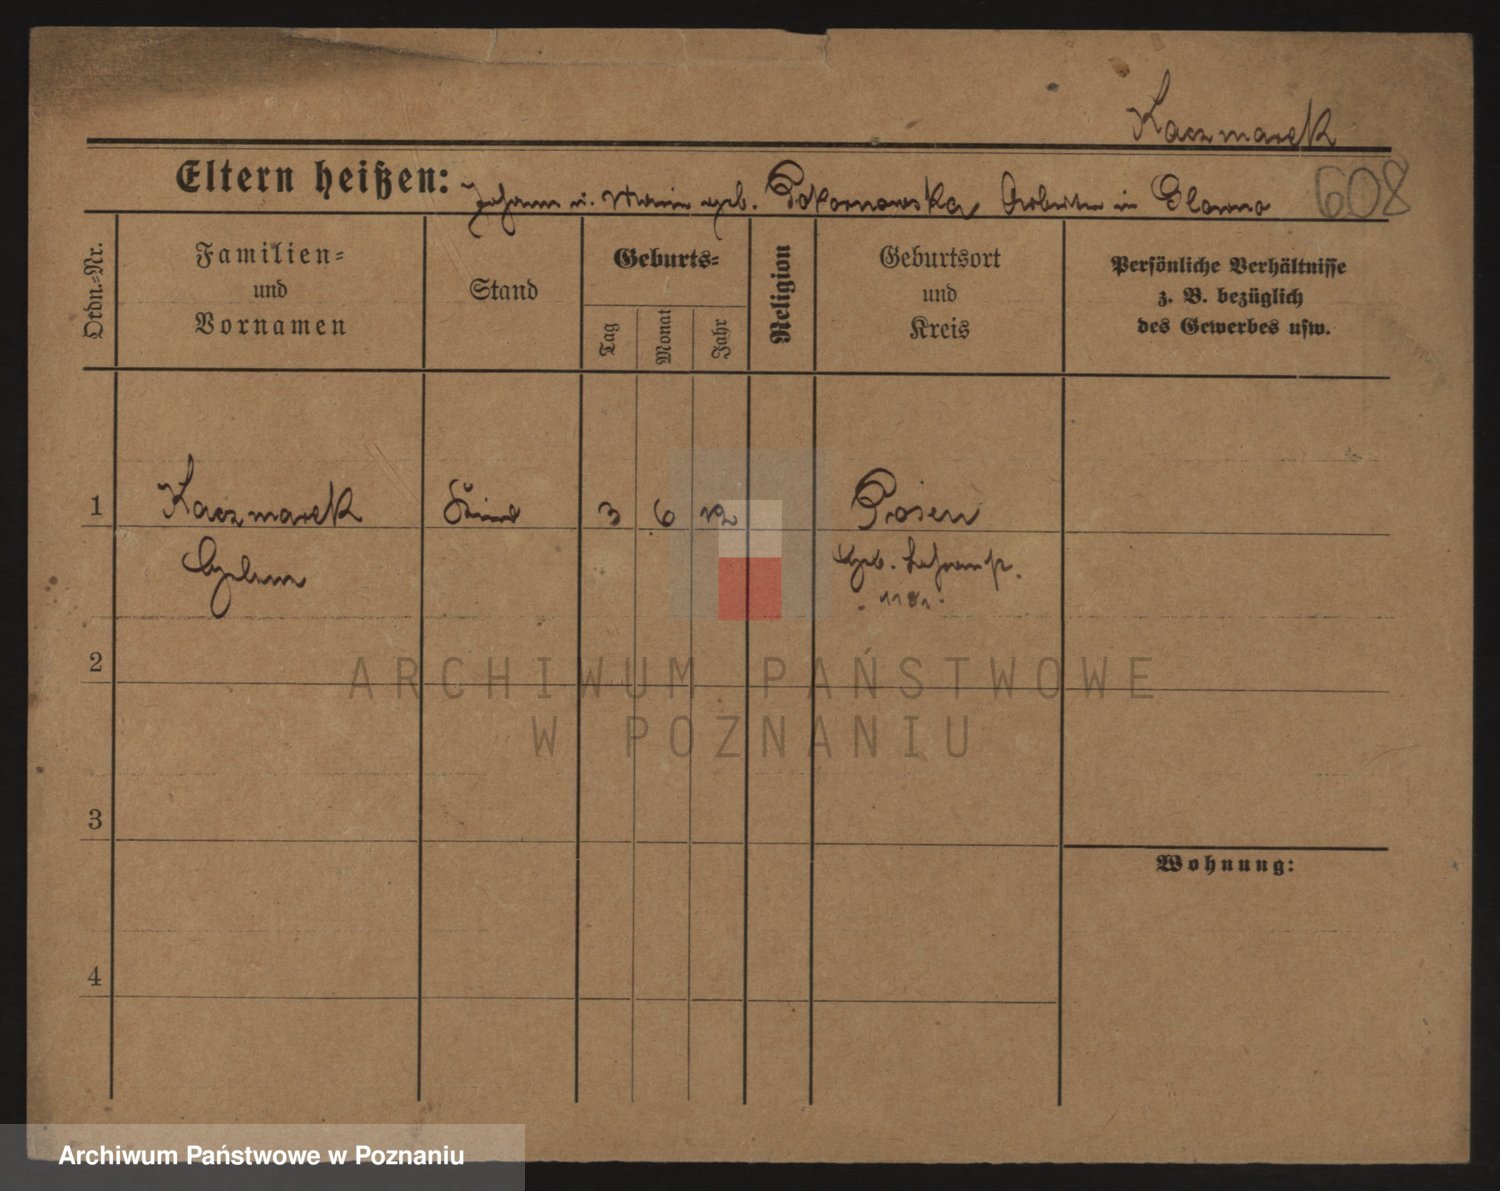 Kaczmarek
Eltern heißen: Johann u. Marie geb. Pokornowska Arbeiter in Glowno 608
Ordn.-Nr.
Familien-
und
Vornamen
Stand
Geburts-
Tag
Monat
Jahr
Religion
Geburtsort
und
Kreis
Persönliche Verhältnisse
z. B. bezüglich
des Gewerbes usw.
1 Kaczmarek Kind 3 6 12 Posen
geb.
2
ARCHIWUM PAŃSTWOWE
W POZNANIU
3
Wohnung:
4
Archiwum Państwowe w Poznaniu